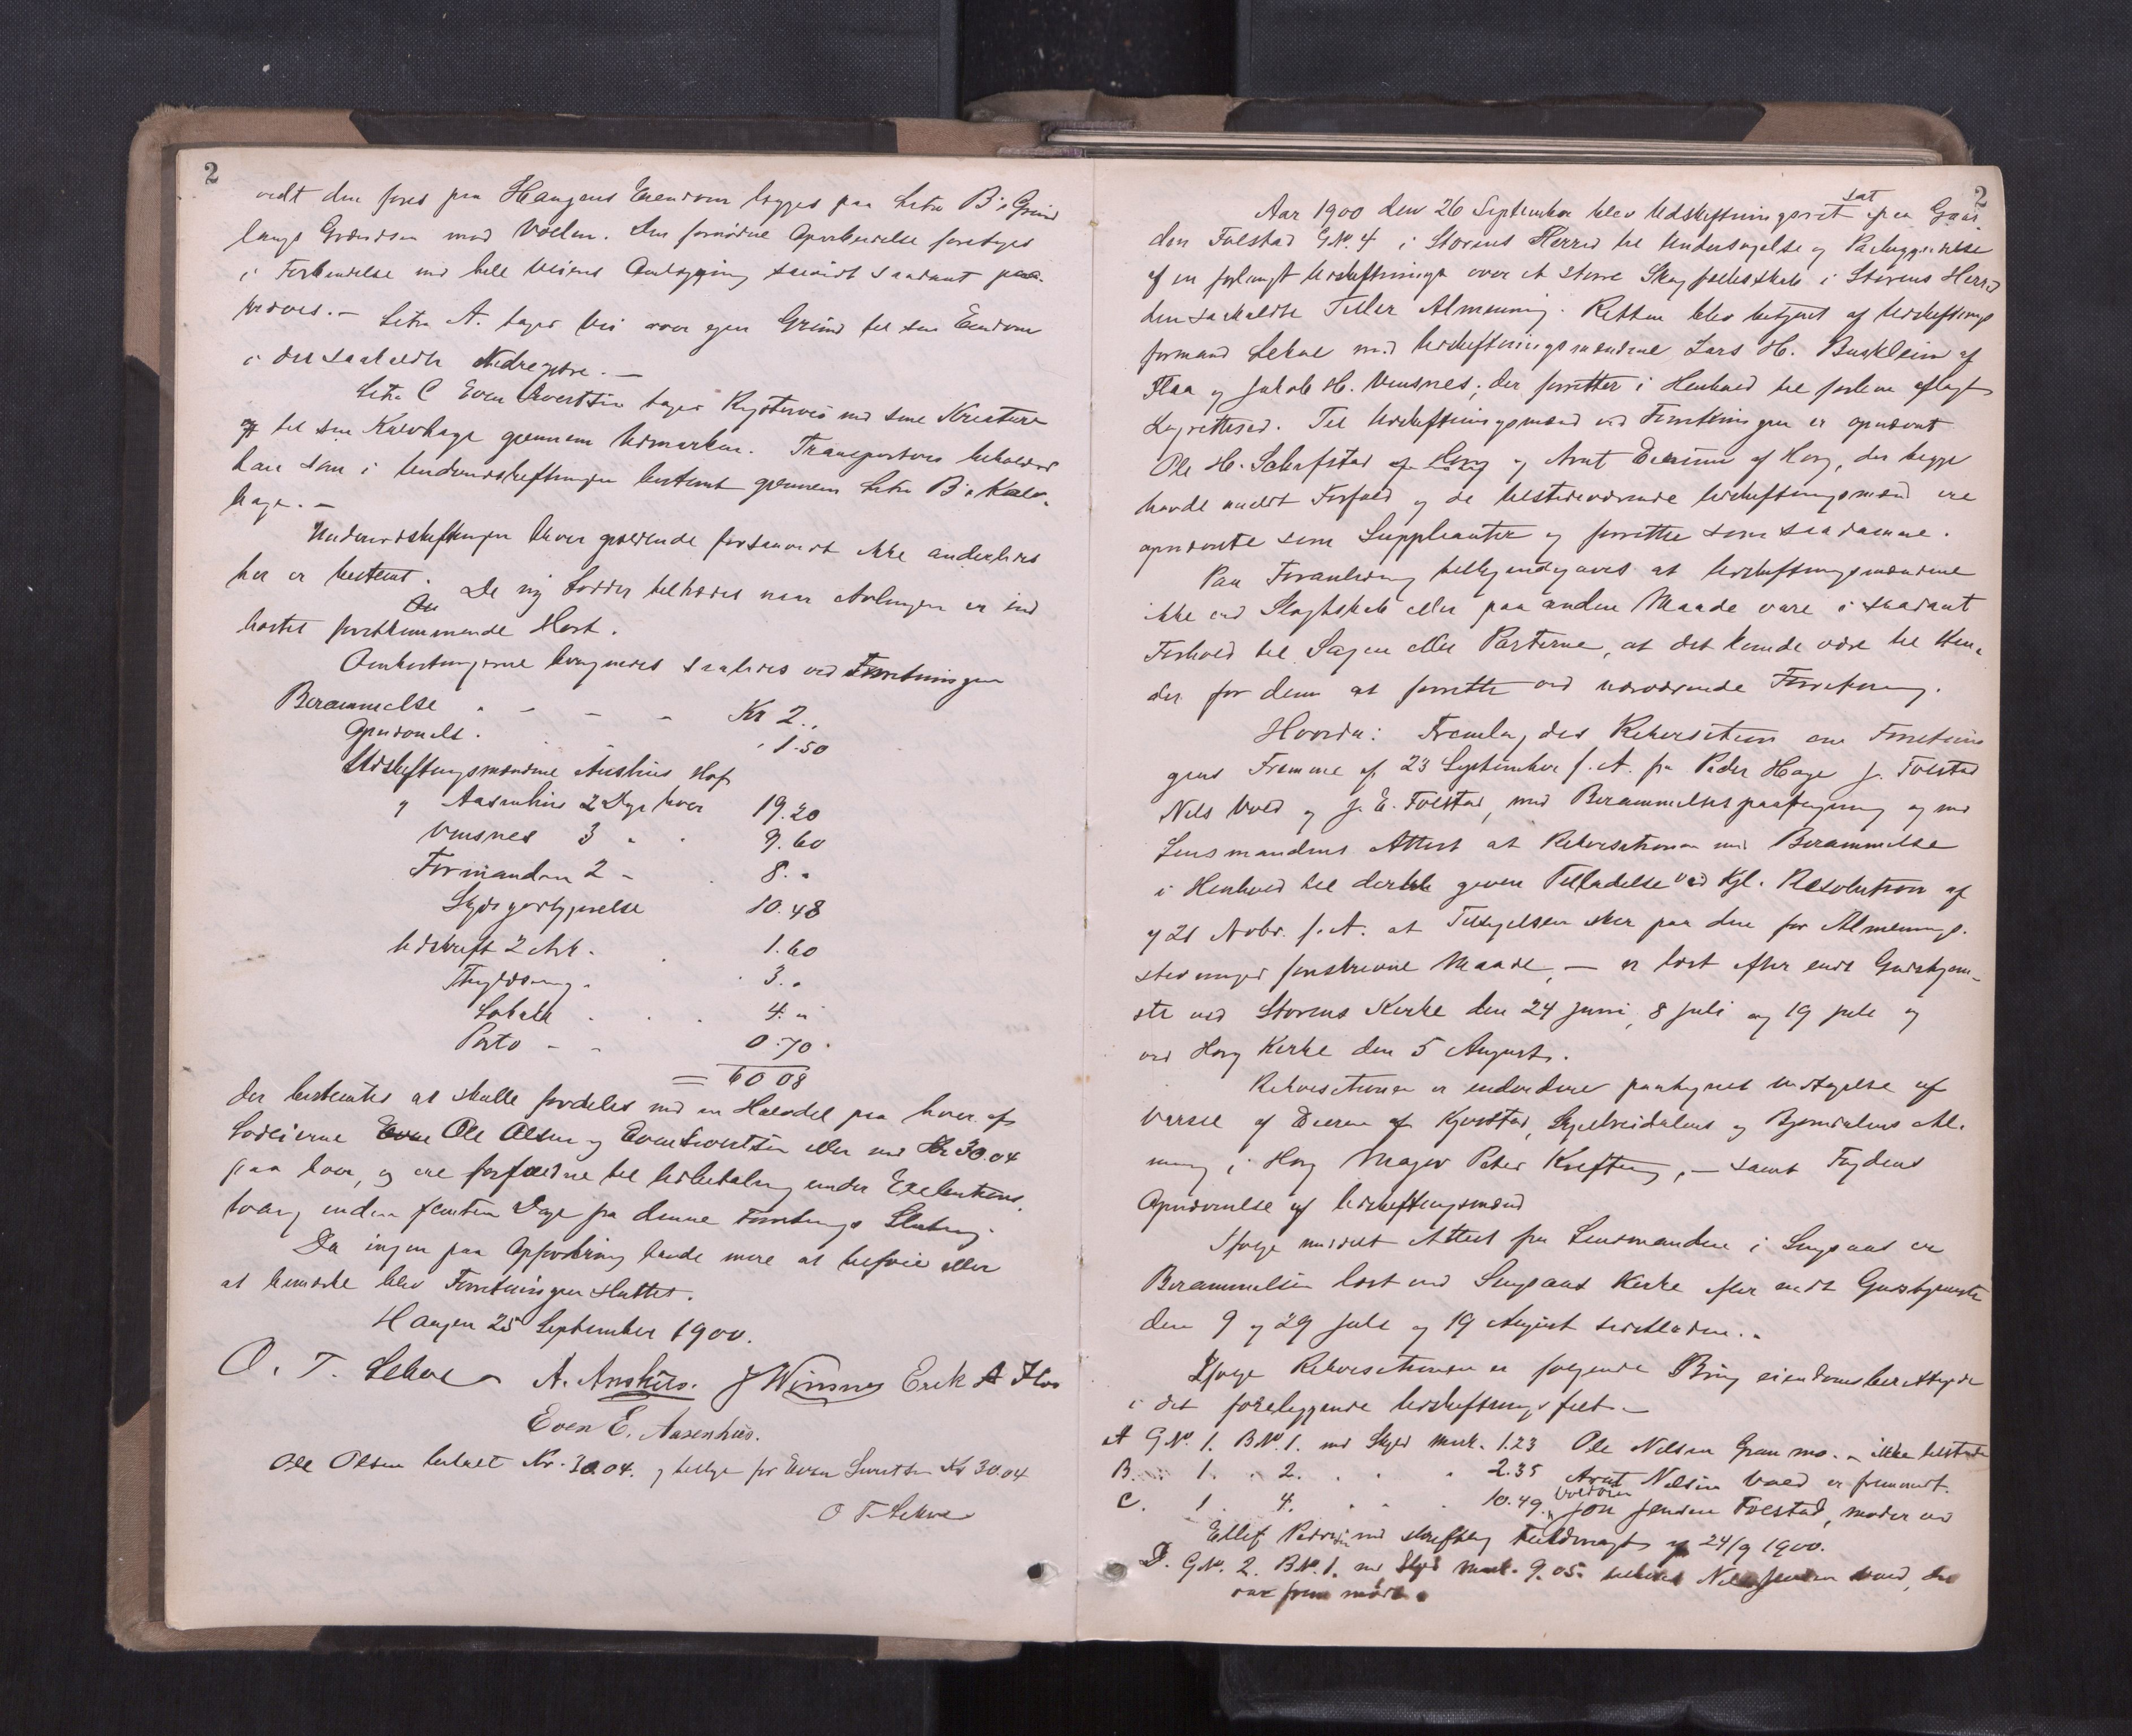 2
vidt den føres paa Haugens Eiendom lægges paa Litra B's Grund
langs Grændsen mod Volden. Den fornødne Oparbeidelse foretages
i Forbindelse med hele Veiens Omlægning saavidt saadant paa-
kræves.— Litra A. tager Vei over egen Grund til sin Eiendom
i det saakaldte Nedregjære.—
Litra C Even Sivertsen tager Kryøtervei med sine Kreature
til sin Kalvhage gjennem Udmarken. Transportvei beholder
han som i Underudskiftningen bestemt gjennem Litra B's Kalv-
hage.—
Underudskiftningen bliver gjældende forsaavidt ikke anderledes
her er bestemt. De ny Lodder tiltrædes naar Avlingen er ind
høstet førstkommende Høst.
Omkostningerne beregnedes saaledes ved Forretningen
Berammelse - - - - Kr 2..
Opnævnelse . . . 1.50
Udskiftningsmændene Anshus Hof
og Aasenhus 2 Dage hver 19.20
Vinsnes 3 " . 9.60
Formanden 2 - . 8."
Skydsgodtgjørelse 10.48
Udskrift 2 Ark. . 1.60
Thinglæsning. . 3."
Lokale . . . 4."
Porto - - 0.70.
= 60 08
der bestemtes at skulle fordeles med en Halvdel paa hver af
Lodeierne Ole Olsen og Even Sivertsen eller med Kr 30.04
paa hver, og ere forfaldne til Udbetaling under Exekutions-
tvang inden femten Dage fra denne Forretnings Slutning.
Da ingen paa Opfordring havde mere at tilføie eller
at bemærke blev Forretningen sluttet.
Haugen 25 September 1900.
O. T. Lehne A. Anshus. J Winsnes Erik A Hov
Even E. Aasenhus.
Ole Olsen betalt Kr. 30.04. og tillige for Even Sivertsen Kr 30.04
O T Lehne
2
sat
Aar 1900 den 26 September blev Udskiftningsret paa Gaar-
den Folstad G.№. 4 i Størens Herred til Undersøgelse og Paabegyndelse
af en forlangt Udskiftning over et større Skogfælledsskab i Størens Herred
den saakaldte Teller Almenning. Retten blev betjent af Udskiftnings
formand Lehne med Udskiftningsmændene Lars H. Busklein af
Flaa og Jakob H. Vinsnes; der forretter i Henhold til forhen aflagt
Lagrettesed. Til Udskiftningsmænd ved Forretningen er opnævnt
Ole H. Solafstad af Horg og Arnt af Horg, der begge
havde meldt Forfald og de tilstedeværende Udskiftningsmænd ere
opnævnte som Suppleanter og forretter som saadanne.
Paa Foranledning tilkjendegaves at Udskiftningsmændene
ikke ved Slægtskab eller paa anden Maade vare i saadant
Forhold til Sagen eller Parterne, at det kunde være til Hin-
der for dem at forrette ved nærværende Forretning.
Hvorda: Fremlagdes Rekvisition om Forretnin
gens Fremme af 23 September f. A. fra Peder Hage J. Folstad
Nils Vold og J. E. Folstad, med Berammelsespaategning og med
Lensmandens Attest at Rekvisitionen med Berammelse
i Henhold til dertil given Tilladelse ved Kgl. Resolution af
af 21 Novbr. f. A. at Tilsigelsen sker paa den for Almennings-
stevninger foreskrevne Maade,— er læst efter endt Gudstjene-
ste ved Størens Kirke den 24 Juni, 8 Juli og 19 Juli og
ved Horg Kirke den 5 August.
Rekvisitionen er endvidere paategnet Vedtagelse af
Varsel af Eieren af Kjørstad, og Al-
ning i Horg Major Peter Krefting,— samt Fogdens
Opnævnelse af Udskiftningsmænd
Ifølge meddelt Attest fra Lensmanden i Singsaas er
Berammelsen læst ved Singsaas Kirke efter endt Gudstjeneste
den 9 og 29 Juli og 19 August sidstleden..
Ifølge Rekvisitionen er følgende Brug eiendomsberettigede
i det foreliggende Udskiftningsfelt.—
A G.№. 1. B.№. 1. med Skyld Mark. 1.23 Ole Nilsen Granmo. — ikke tilstede
B. 1. " 2. . . " 2.35 Arnt Nilsen Vold er fremmødt.
C. 1. 4. . " . 10.49. Jon Jensen Folstad, møder ved
Ellef Pedersen med skriftlig Fuldmagt af 24/9 1900.
D. G.№. 2. B.№. 1. med Skyld Mark. 9.05. Nils Jensen Vold, der
var frem mødt.